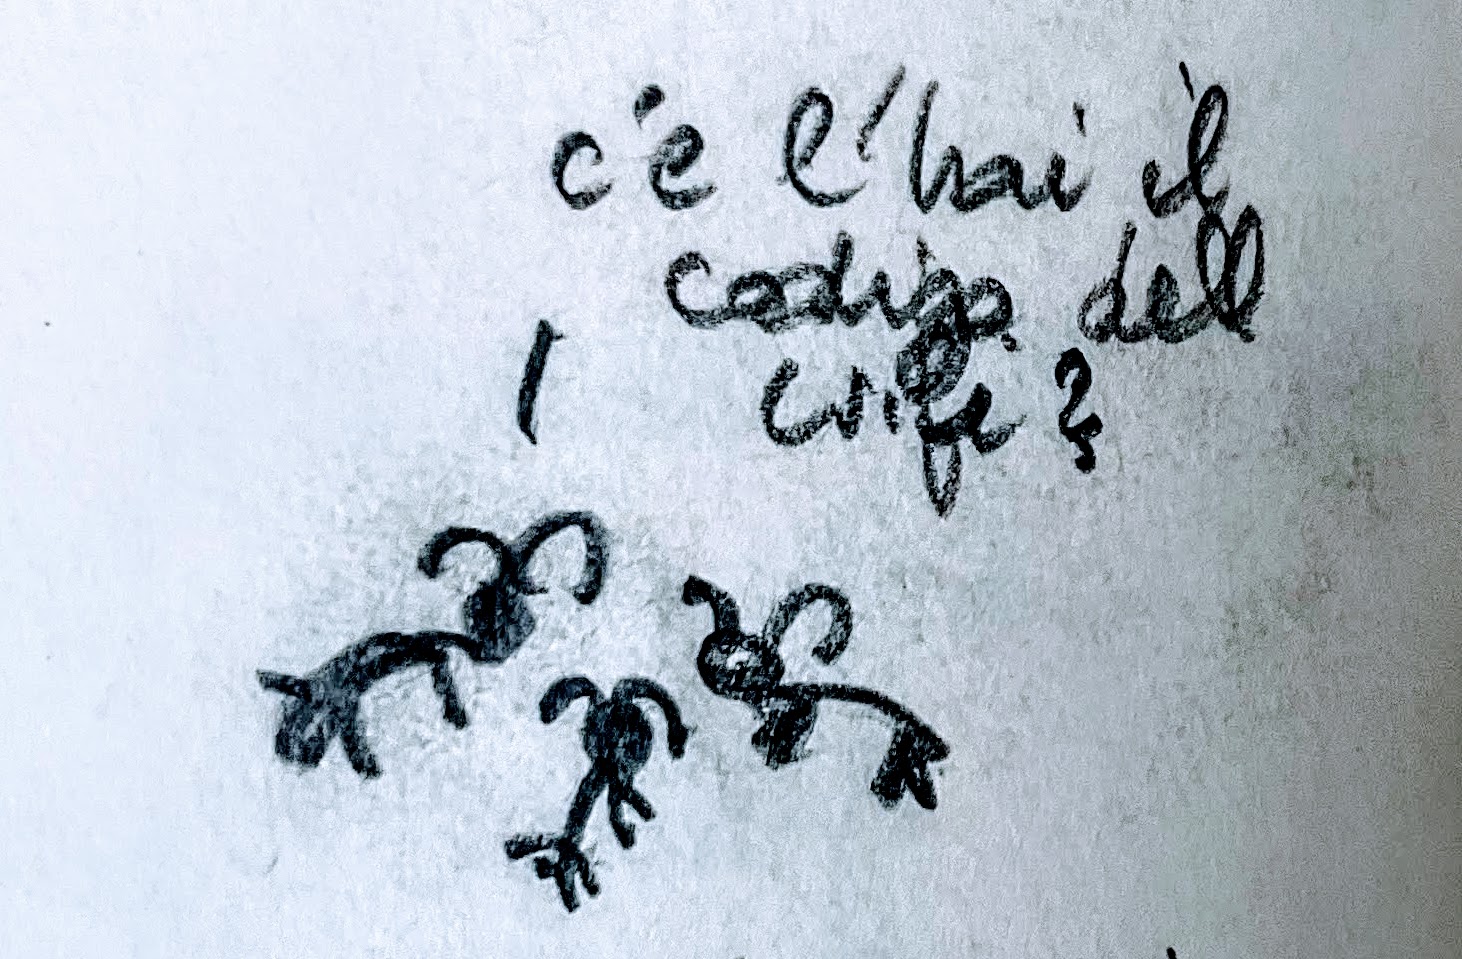 c'è l'hai il
codigo dell
wife?